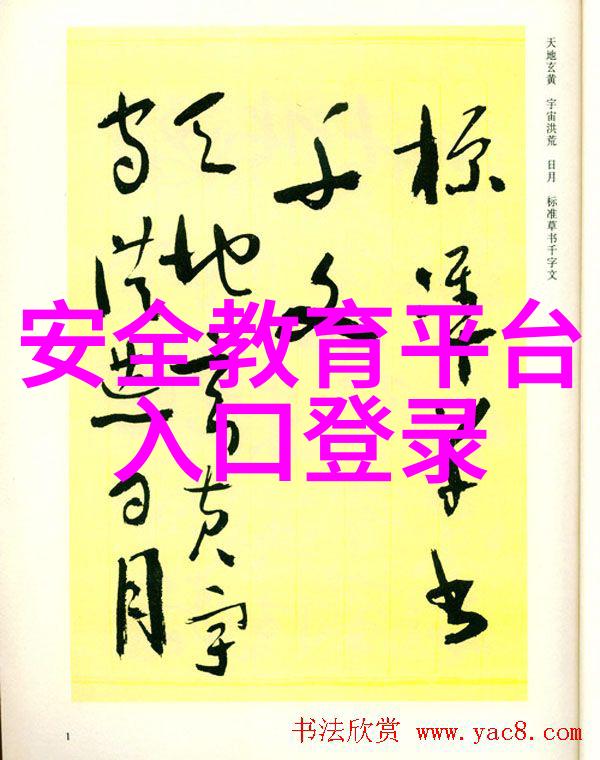 天地玄黄 宇宙洪荒 日月 标准草书千字文
标准草书
千文
天地玄黄宇
宙洪荒日月
安全教育平台
入口登录
1
书法欣赏 www.yac8.com